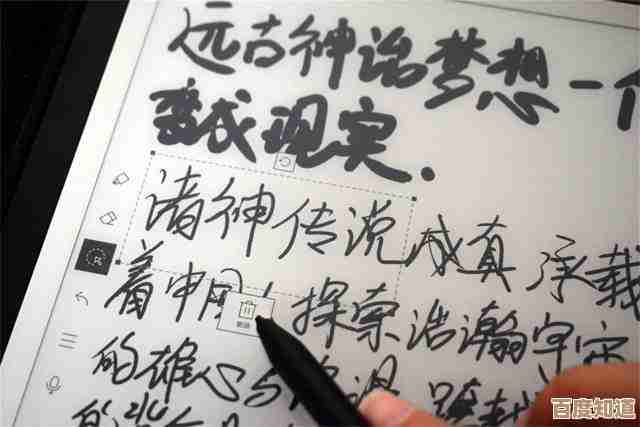 远古神话梦想一个
变成现实.
诸神传说成真 承载
着中国 探索浩瀚宇宙
的雄心与
的
删除
百度知道